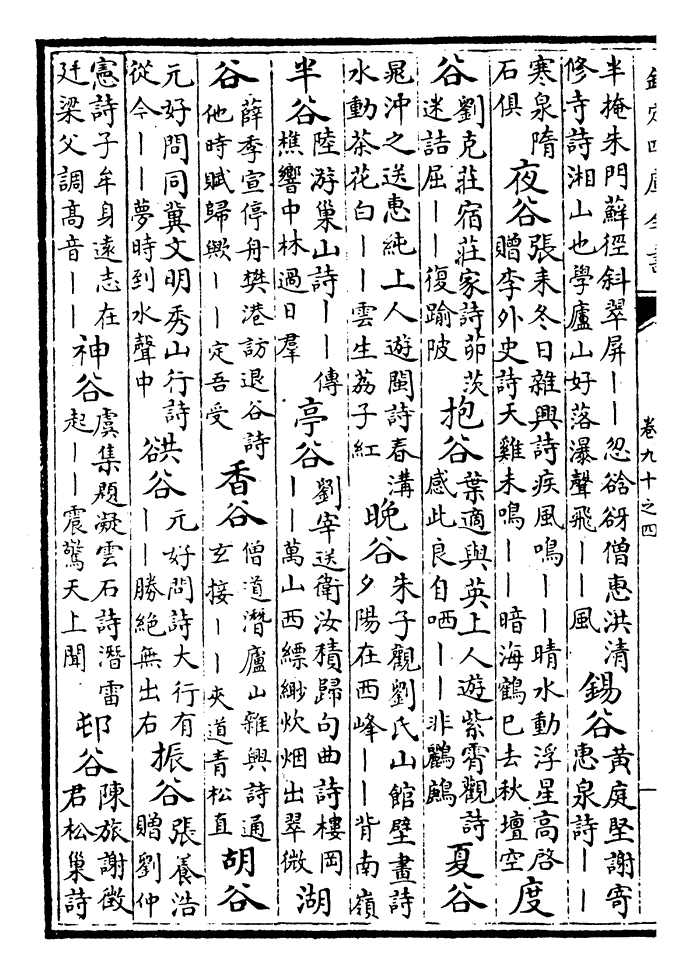 欽定四庫全書
卷九十之四
一
半掩朱門蘚徑斜翠屏——忽谽谺僧惠洪清
修寺詩湘山也學廬山好落瀑聲飛——風
錫谷
黄庭堅謝寄
惠泉詩——
寒泉隋
石俱
夜谷
張耒冬日雜興詩疾風鳴——晴水動浮星高啓
贈李外史詩天雞未鳴——暗海鶴已去秋壇空
度
谷
劉克莊宿莊家詩茆茨
迷詰屈——復踰陂
抱谷
葉適與英上人遊紫霄觀詩
感此良自哂——非鸝鷓
夏谷
晁沖之送惠純上人遊閩詩春溝
水動茶花白——雲生荔子紅
晚谷
朱子觀劉氏山館壁畫詩
夕陽在西峰——背南嶺
半谷
陸游巢山詩——傳
樵響中林過日羣
亭谷
劉宰送衛汝積歸句曲詩樓岡
——萬山西縹緲炊烟出翠微
湖
谷
薛季宣停舟樊港訪退谷詩
他時賦歸歟——定吾受
香谷
僧道潛廬山雜興詩通
玄接——夾道青松直
胡谷
元好問同冀文明秀山行詩
從今——夢時到水聲中
谼谷
元好問詩大行有
——勝絶無出右
振谷
張養浩
贈劉仲
憲詩子牟身遠志在
廷梁父調高音——
神谷
虞集題凝雲石詩潛雷
起——震驚天上聞
邨谷
陳旅謝徵
君松巢詩